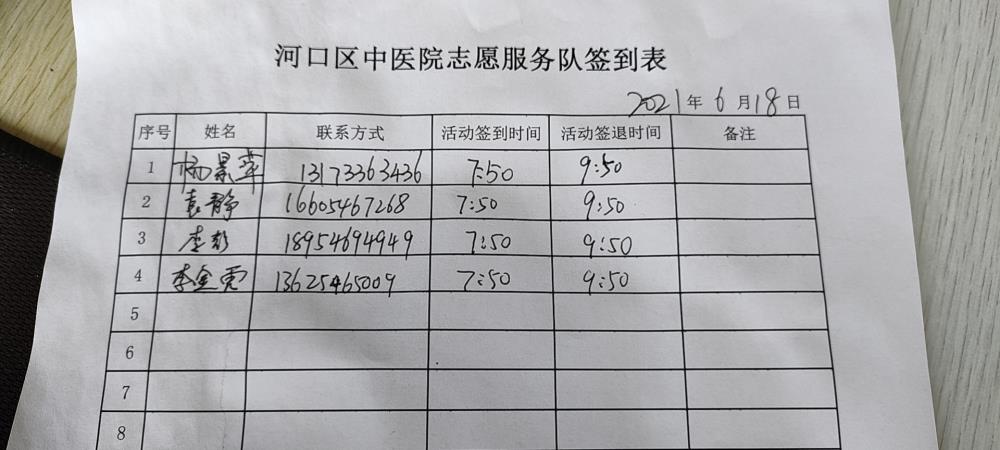 河口区中医院志愿服务队签到表
2021年6月18日
序号 姓名 联系方式 活动签到时间 活动签退时间 备注
1 杨景萍 13173363436 7:50 9:50
2 袁静 16605467268 7:50 9:50
3 李彭 18954694949 7:50 9:50
4 李金霞 13625465009 7:50 9:50
5
6
7
8